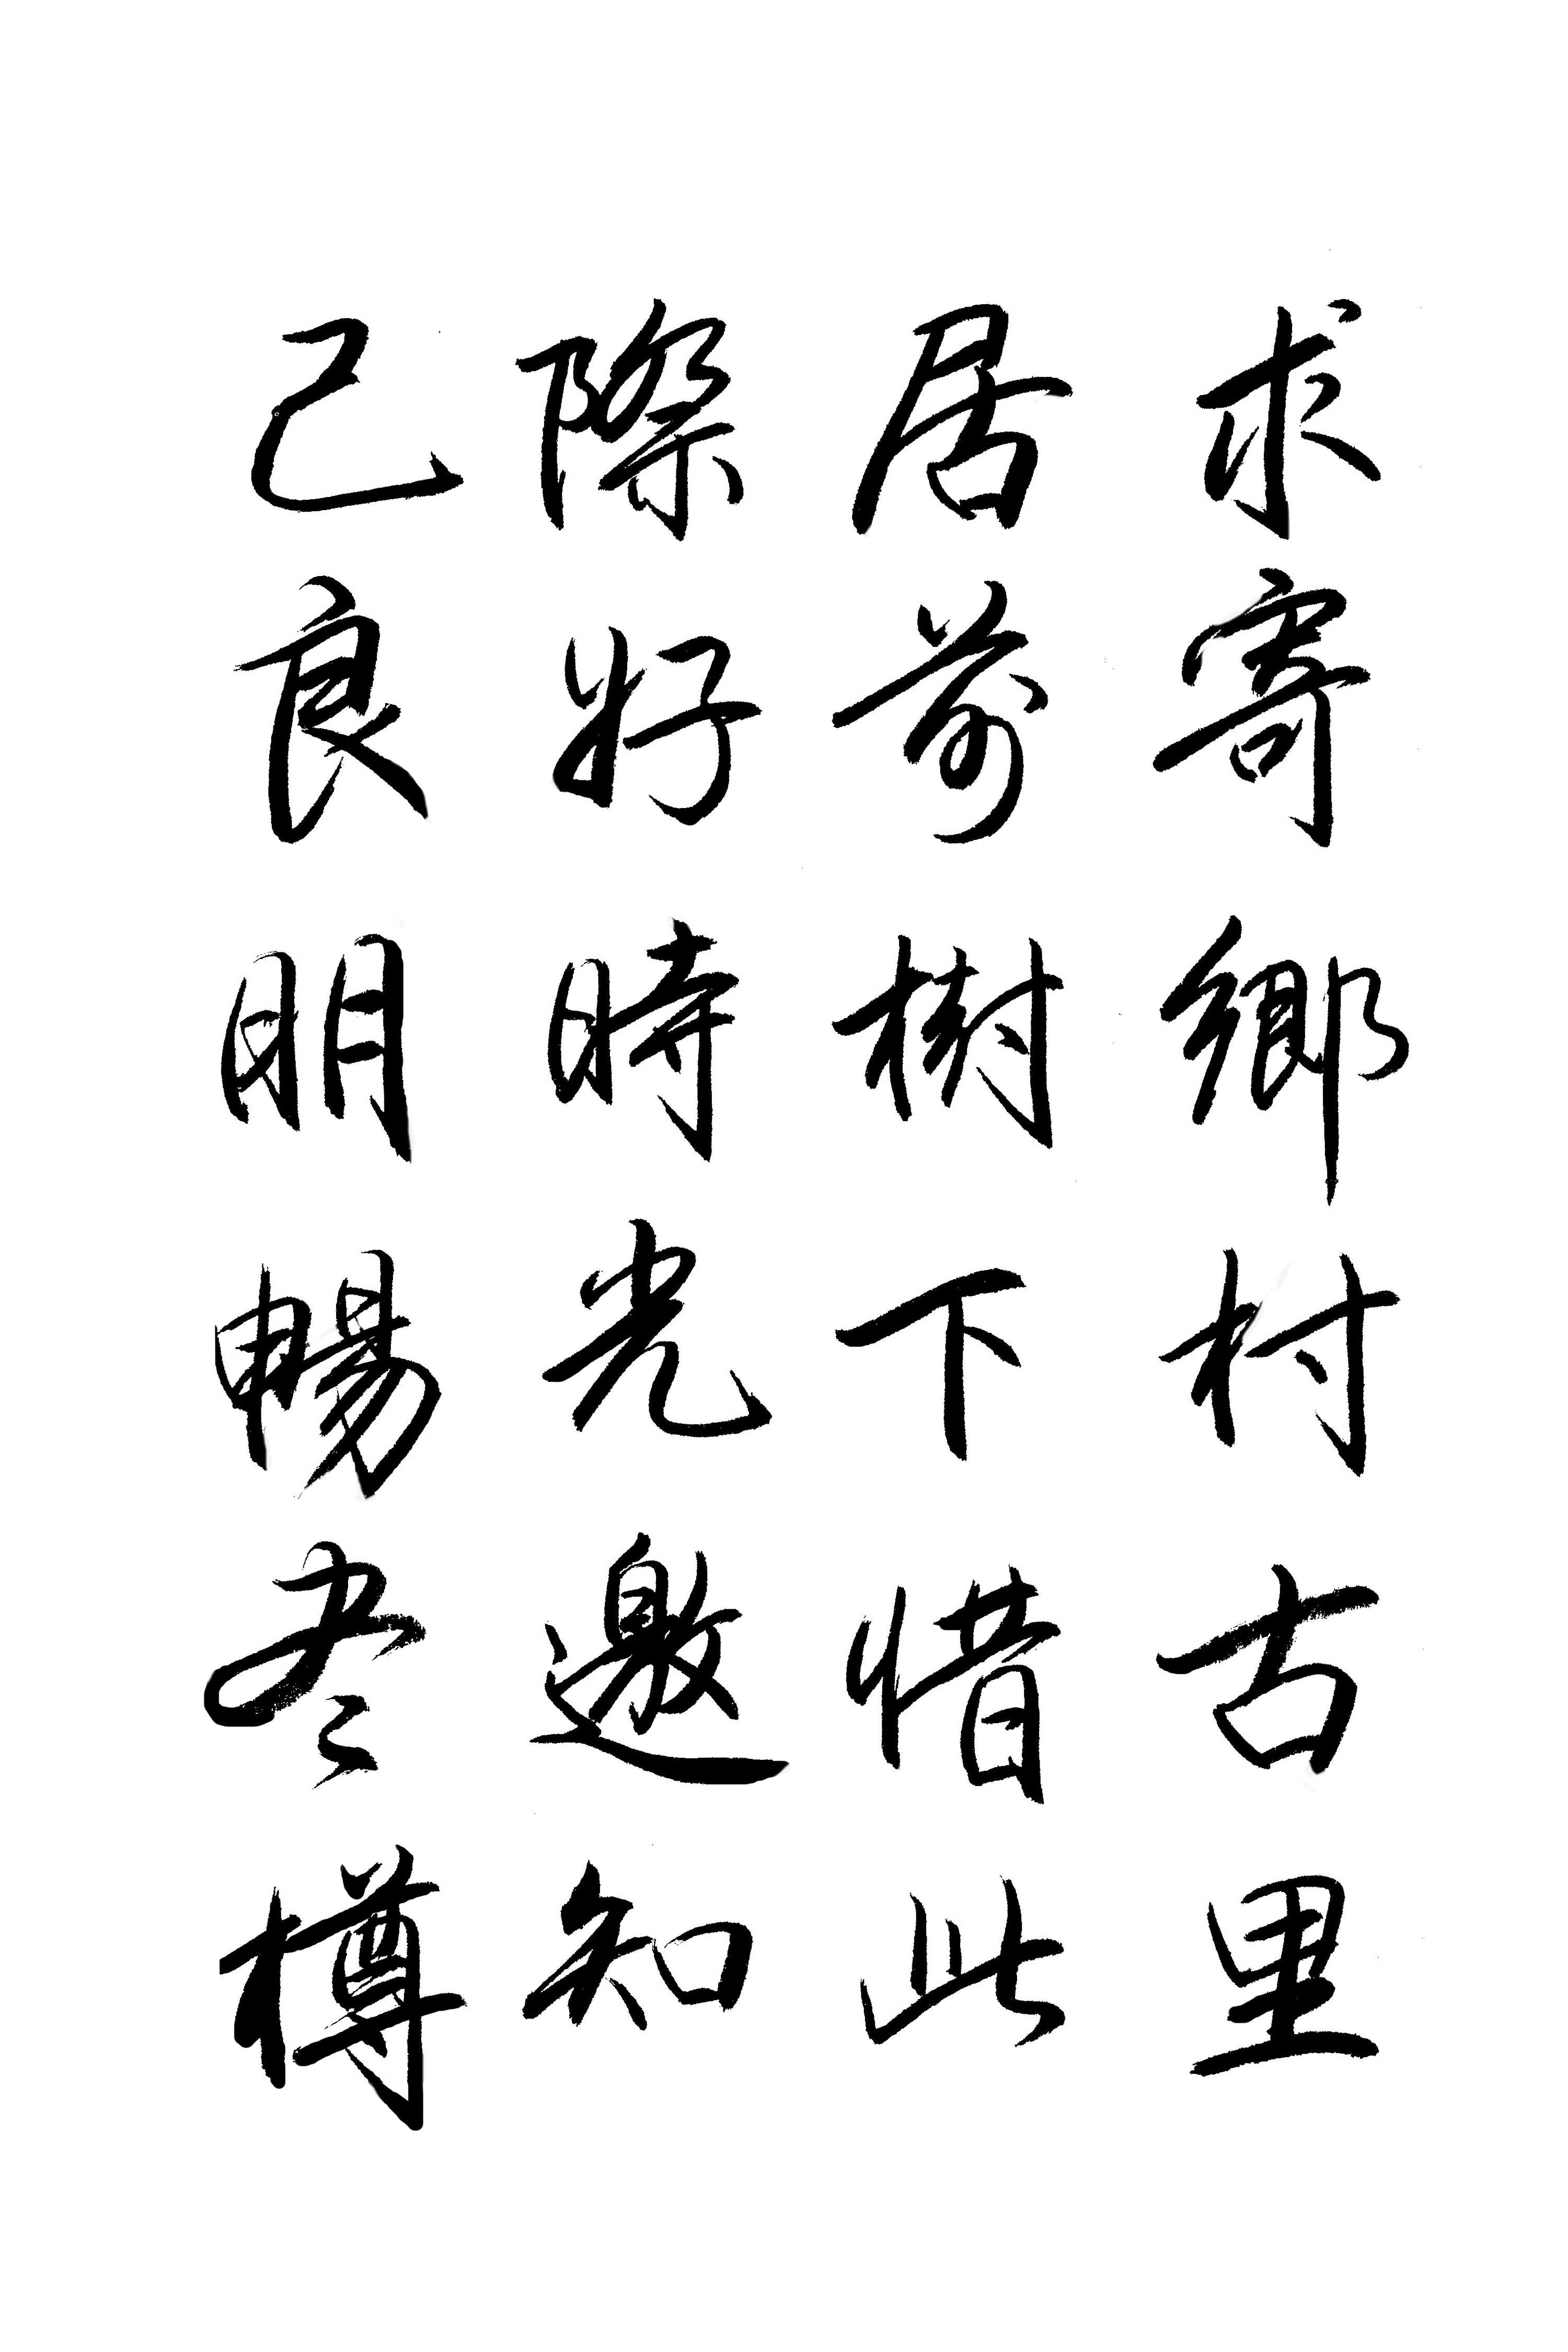 求寄鄉村古里
居前樹下惜此
際好時光邀知
己良朋暢尽樽